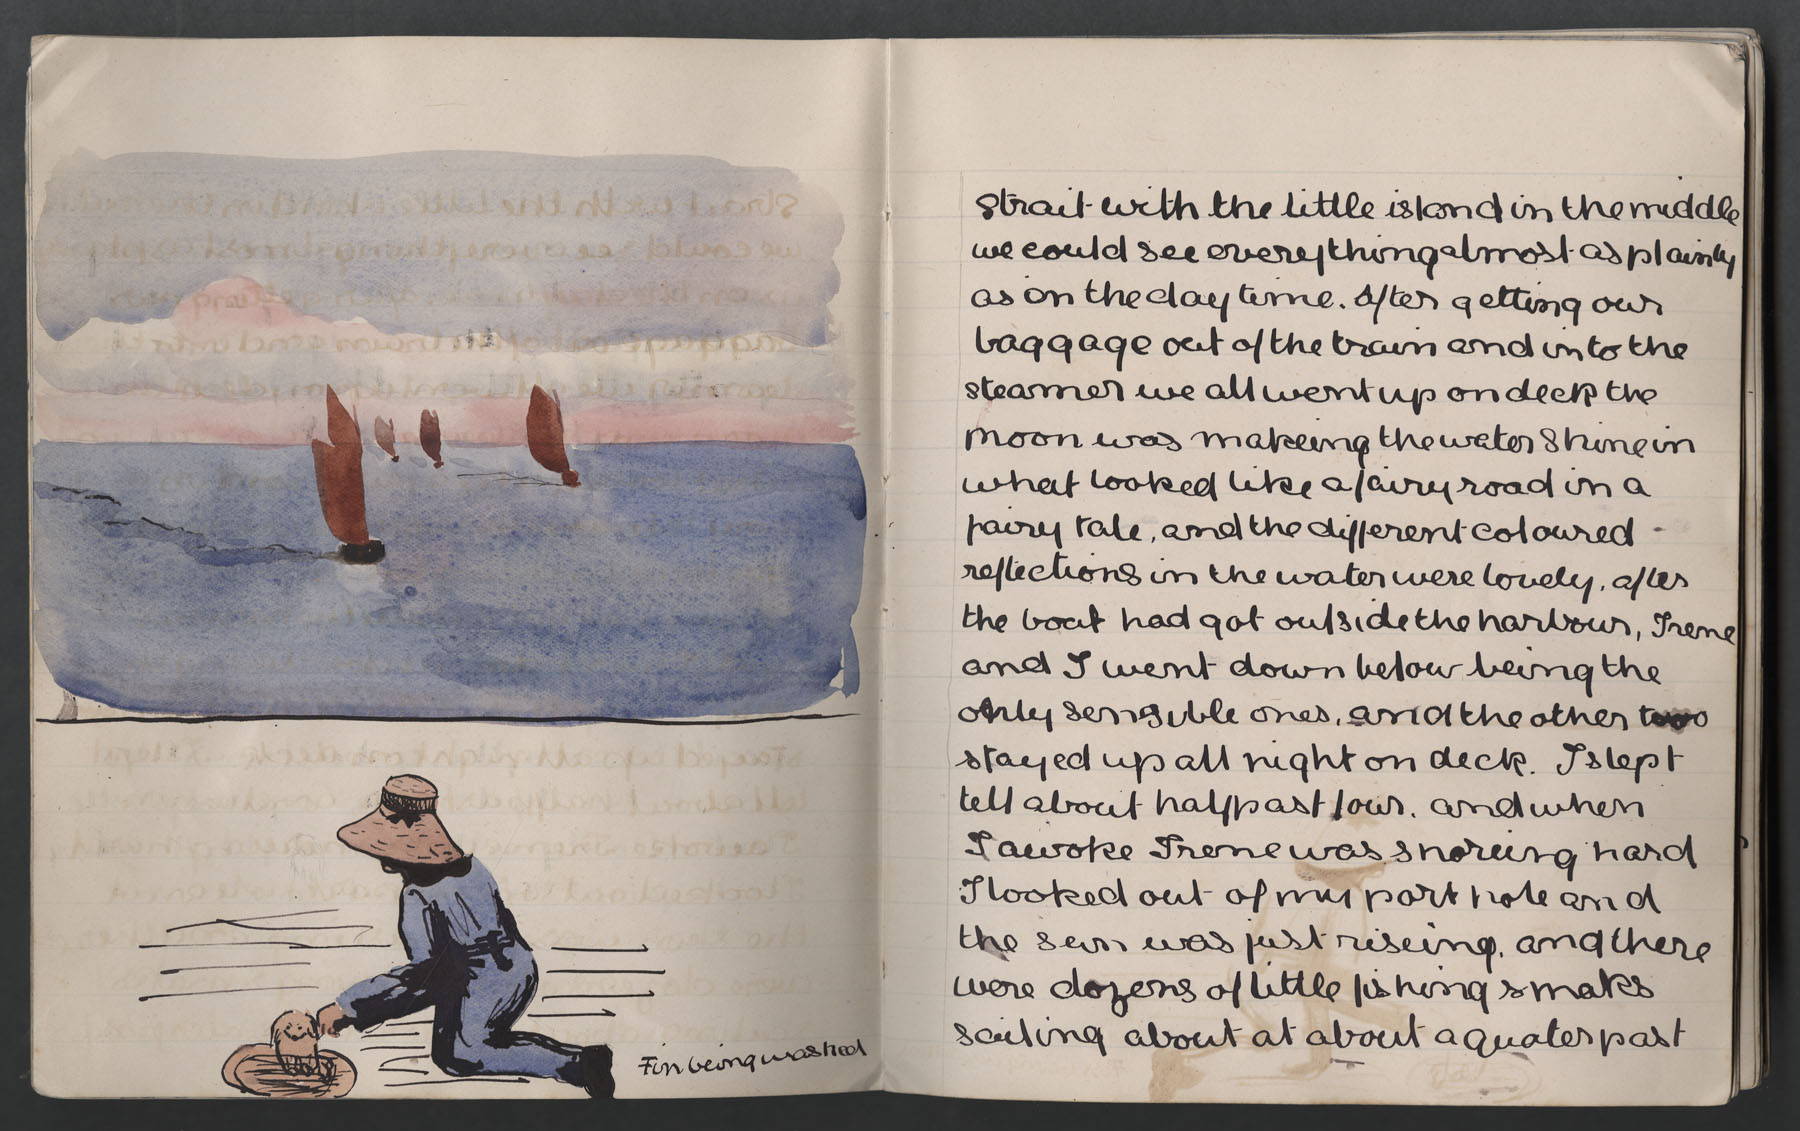 Fin being washed
strait with the little island in the middle
we could see evereything almost as plainly
as on the day time. After getting our
baggage out of the train and into the
steamer we all went up on deck the
moon was makeing the water shine in
what looked like a fairy road in a
fairy tale, and the different coloured -
reflections in the water were lovely, after
the boat had got outside the harbour, Irene
and I went down below being the
only sensible ones, and the other two
stayed up all night on deck. I slept
tell about half past four. and when
I awoke Irene was snoreing hard
I looked out of my port hole and
the sun was just riseing, and there
were dozens of little fishing smaks
sailing about at about a quater past